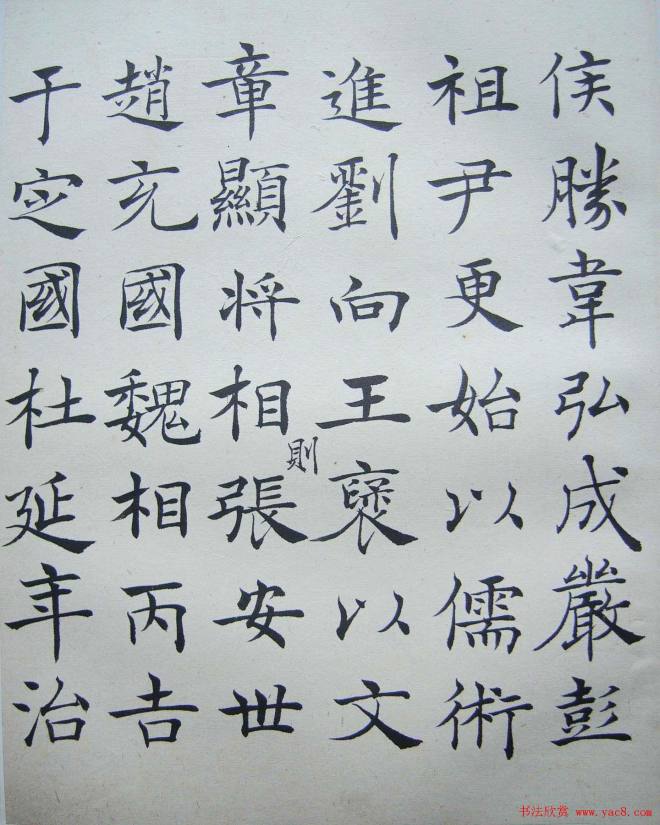 侯勝韋弘成嚴彭
祖尹更始以儒術
進劉向王襃以文
章顯將相則張安世
趙充國魏相丙吉
于定國杜延年治
书法欣赏 www.yac8.com